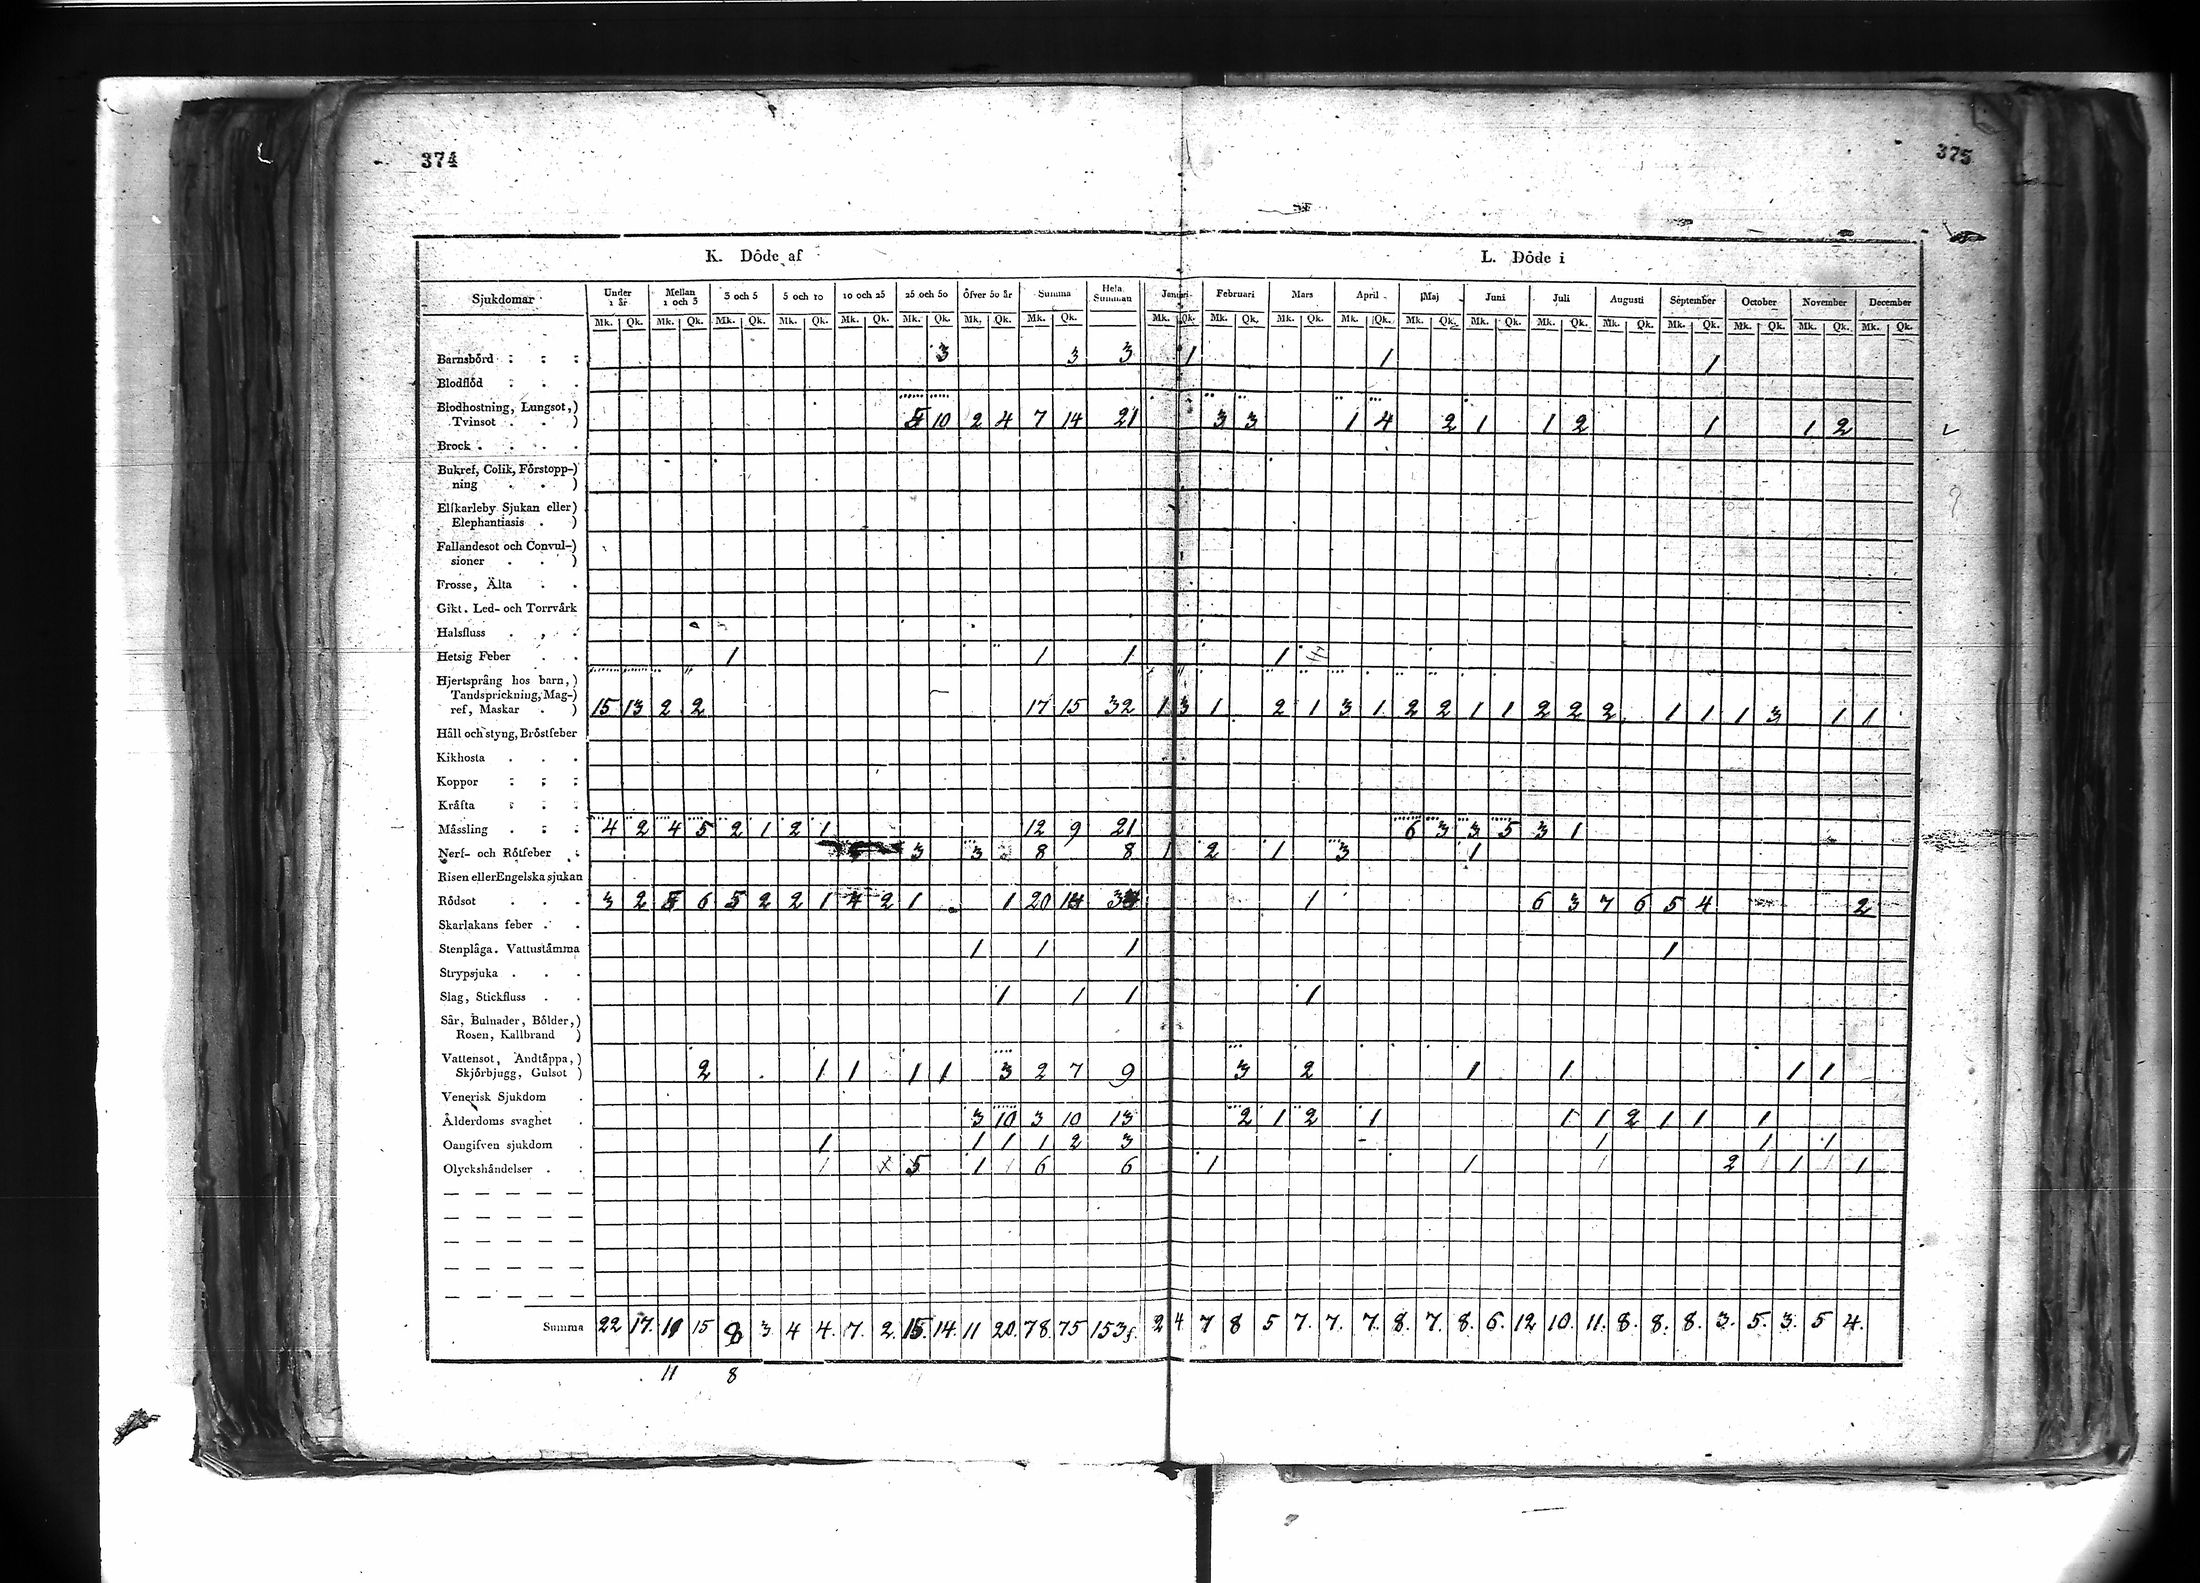 374
375
K. Döde af
L. Döde i
Sjukdomar
Under 1 år
Mellan 1 och 3
3 och 5
5 och 10
10 och 25
25 och 50
Öfver 50 år
Summa
Hela Summan
Januari
Februari
Mars
April
Maj
Juni
Juli
Augusti
September
October
November
December
Mk. Qk. Mk. Qk. Mk. Qk. Mk. Qk. Mk. Qk. Mk. Qk. Mk. Qk. Mk. Qk. Mk. Qk. Mk. Qk. Mk. Qk. Mk. Qk. Mk. Qk. Mk. Qk. Mk. Qk. Mk. Qk. Mk. Qk. Mk. Qk. Mk. Qk. Mk. Qk.
Barnsbörd 3 3 3 1 1 1
Blodflöd
Blodhostning, Lungsot,)
Tvinsot ) 5 10 2 4 7 14 21 3 3 1 4 2 1 1 2 1 1 2
Brock
Bukref, Colik, Förstopp-)
ning )
Elfkarleby Sjukan eller)
Elephantiasis )
Fallandesot och Convul-)
sioner )
Frosse, Älta
Gikt. Led- och Torrvärk
Halsfluss
Hetsig Feber 1 1 1 1
Hjertsprång hos barn,)
Tandsprickning, Mag-)
ref, Maskar ) 15 13 2 2 17 15 32 1 3 1 2 1 3 1 2 2 1 1 2 2 2 1 1 1 3 1 1
Håll och styng, Bröstfeber
Kikhosta
Koppor
Kräfta
Mässling 4 2 4 5 2 1 2 1 12 9 21 6 3 3 5 3 1
Nerf- och Rötfeber 3 3 8 8 1 2 1 3 1
Risen eller Engelska sjukan
Rödsot 3 2 5 6 5 2 2 1 4 2 1 1 20 14 34 1 6 3 7 6 5 4 2
Skarlakans feber
Stenplåga. Vattustämma 1 1 1 1
Strypsjuka
Slag, Stickfluss 1 1 1 1
Sår, Bulnader, Bölder,)
Rosen, Kallbrand )
Vattensot, Andtäppa,)
Skjörbjugg, Gulsot ) 2 1 1 1 1 3 2 7 9 3 2 1 1 1 1
Venerisk Sjukdom
Ålderdoms svaghet 3 10 3 10 13 2 1 2 1 1 1 2 1 1 1
Oangifven sjukdom 1 1 1 1 2 3 1 1 1
Olyckshändelser 5 1 6 6 1 1 2 1 1
Summa 22 17. 11 15 8 3 4 4. 7. 2. 15. 14. 11 20. 78. 75 153 2 4 7 8 5 7. 7. 7. 8. 7. 8. 6. 12 10. 11. 8. 8. 8. 3. 5. 3. 5 4.
11 8